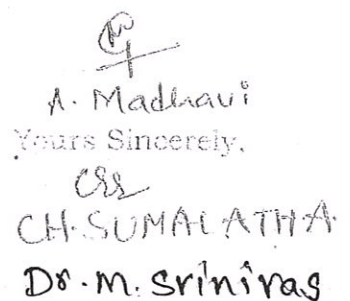 A. Madhavi
Yours Sincerely,
CH. SUMALATHA
Dr. M. Srinivas